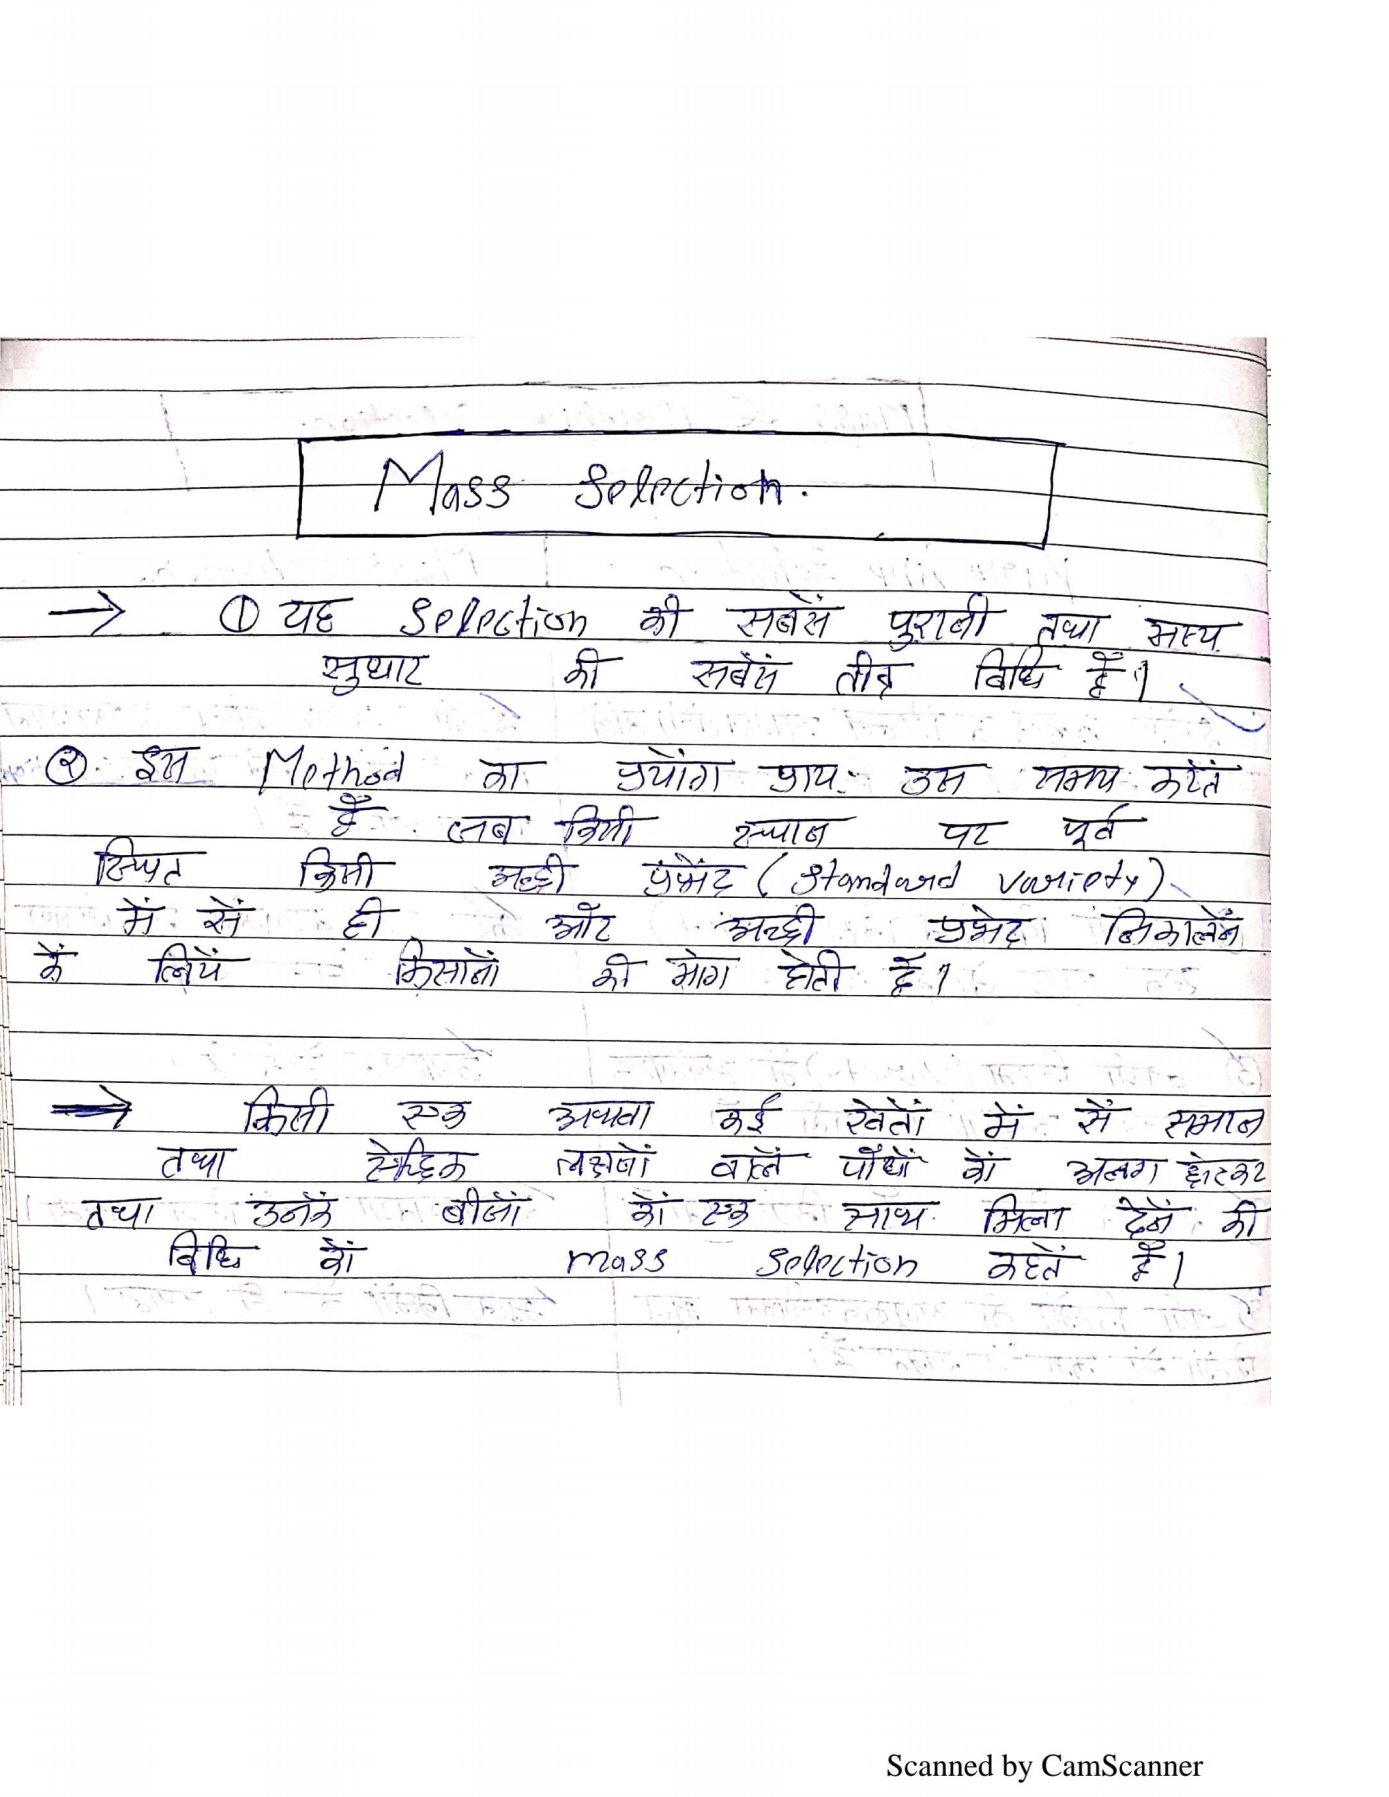 Mass Selection.
→ ① यह Selection की सबेसं पुरानी तथा सस्य
सुधार की सबेसं तीव्र विधि हैं।
② इस Method का प्रयोंग प्राय: उस समय करतें
हैं जब किसी स्थान पर पूर्व
स्थित किसी अच्छी प्रभेंद (Standard variety)
में सें ही और अच्छी प्रभेद निकालनें
कें लियें किसानों की मांग होती हैं।
→ किसी एक अथवा कई खेतों में सें समान
तथा लक्षणों वालें पौंधों कों अलग छांटकर
तथा उनकें बीजों कों एक साथ मिला देनें की
विधि कों mass selection कहतें हैं।
Scanned by CamScanner